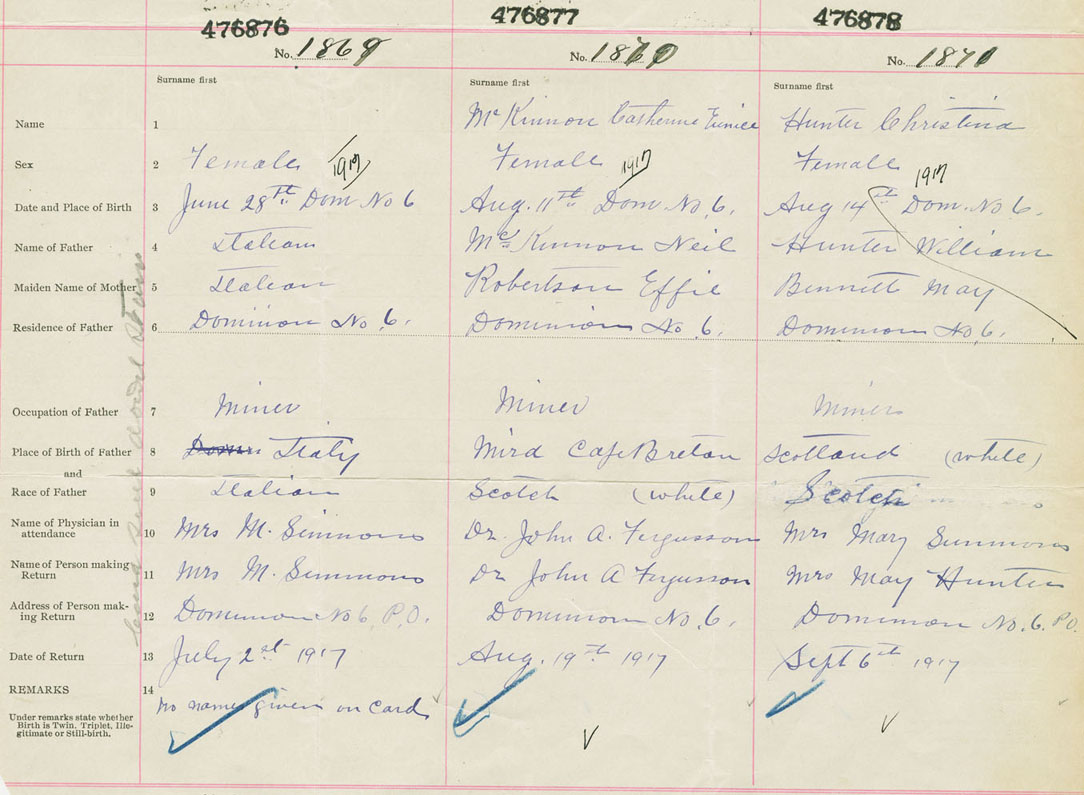 476876 476877 476878
No. 1869 No. 1870 No. 1871
Surname first Surname first Surname first
Name 1 McKinnon Catherine Eunice Hunter Christina
Sex 2 Female 1917 Female 1917 Female 1917
Date and Place of Birth 3 June 28th Dom No 6 Aug. 11th Dom. No. 6. Aug 14th Dom. No 6.
Name of Father 4 Italian McKinnon Neil Hunter William
Maiden Name of Mother 5 Italian Robertson Effie Bennett May
Residence of Father 6 Dominion No. 6. Dominion No. 6. Dominion No 6.
Occupation of Father 7 Miner Miner Miner
Place of Birth of Father 8 Italy Mira Cape Breton Scotland (white)
and
Race of Father 9 Italian Scotch (white) Scotch
Name of Physician in
attendance 10 Mrs M. Simmons Dr. John A. Fergusson Mrs Mary Simmons
Name of Person making
Return 11 Mrs M. Simmons Dr John A Fergusson Mrs May Hunter
Address of Person mak-
ing Return 12 Dominion No 6 P.O. Dominion No. 6. Dominion No. 6. P.O.
Date of Return 13 July 2nd 1917 Aug. 19th 1917 Sept 6th 1917
REMARKS 14 no names given on card
Under remarks state whether
Birth is Twin, Triplet, Ille-
gitimate or Still-birth.